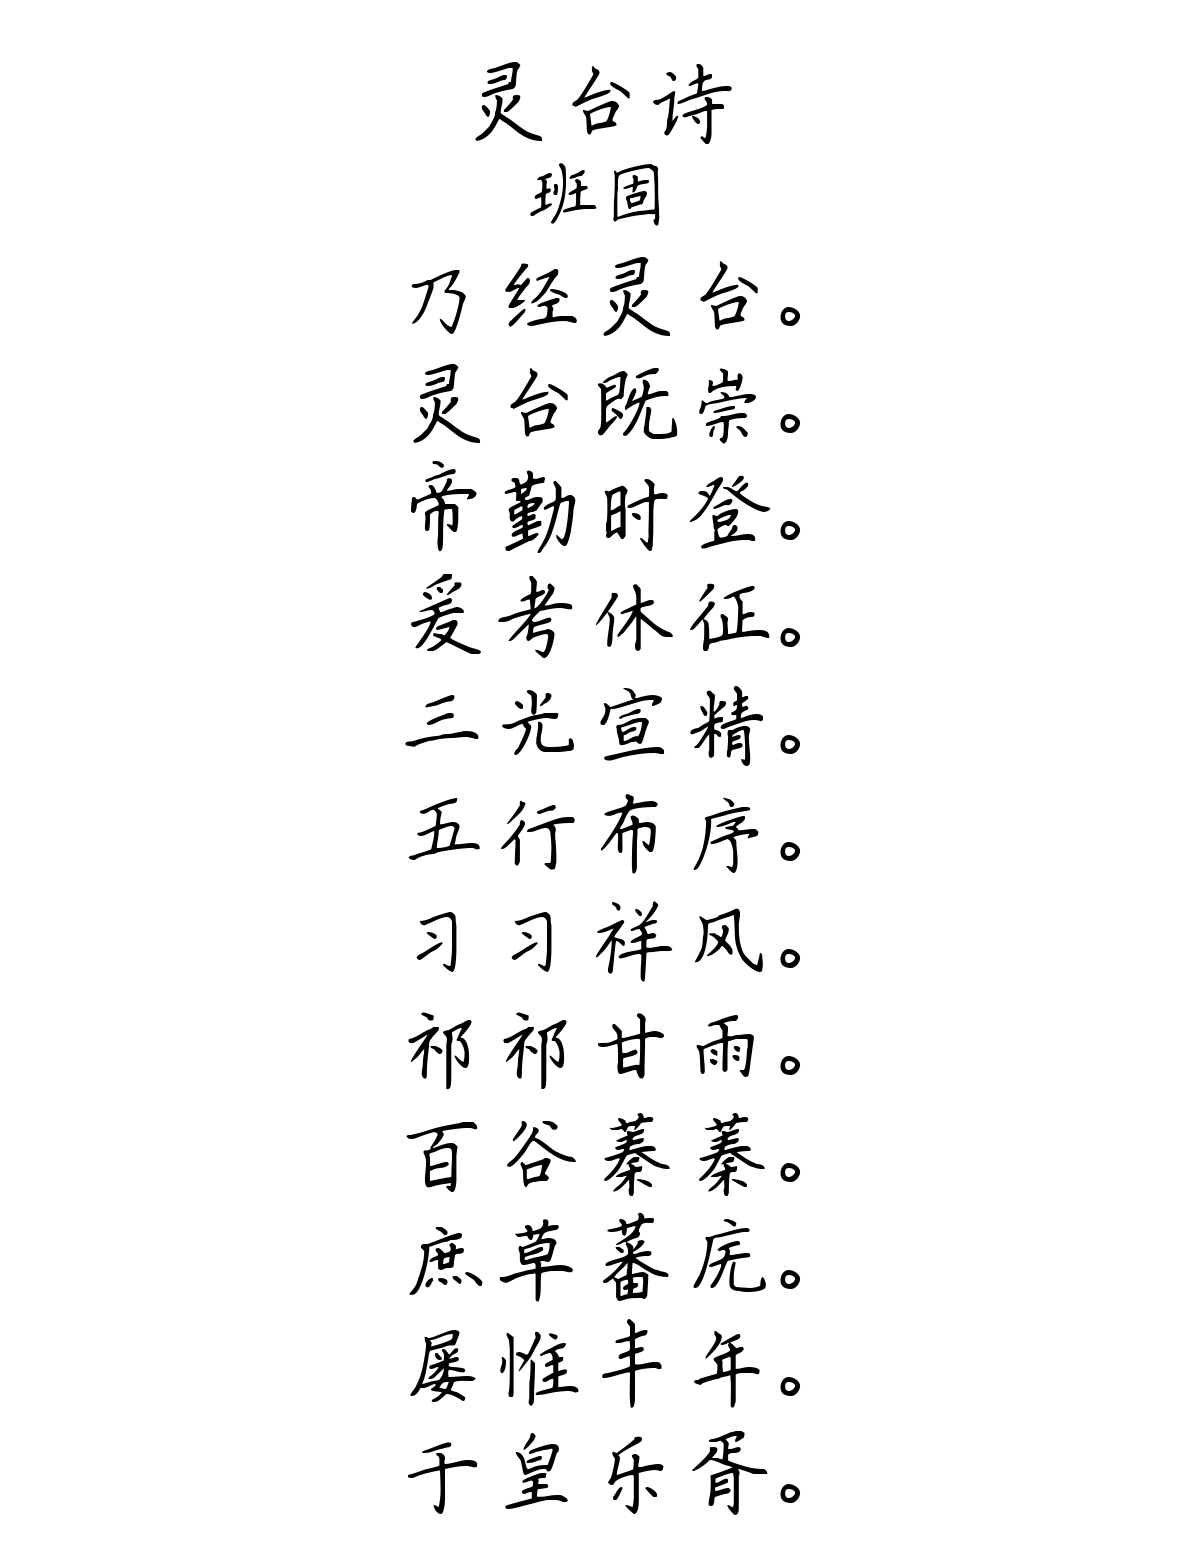 灵台诗
班固
乃经灵台。
灵台既崇。
帝勤时登。
爰考休征。
三光宣精。
五行布序。
习习祥风。
祁祁甘雨。
百谷蓁蓁。
庶草蕃庑。
屡惟丰年。
于皇乐胥。